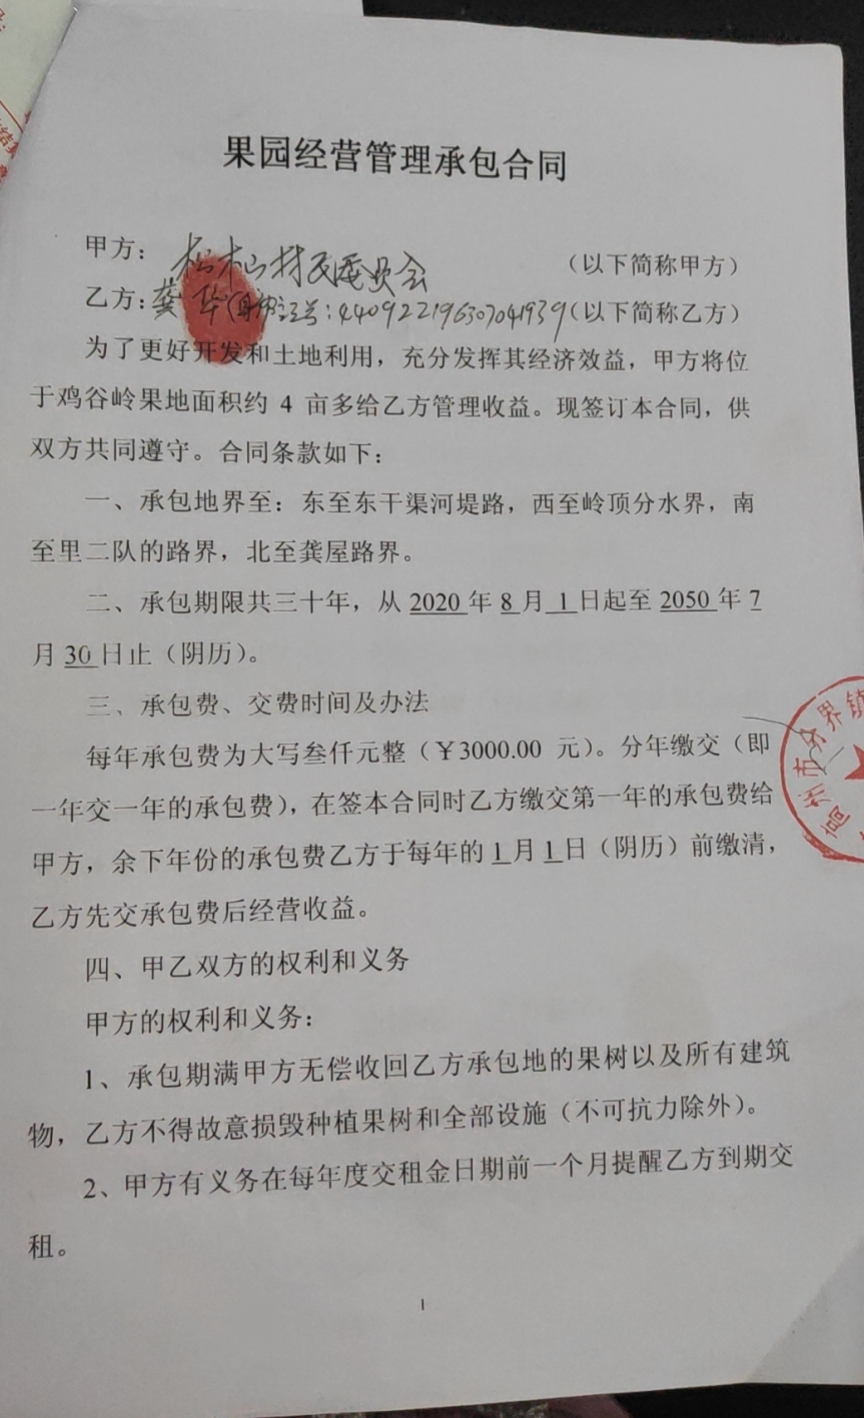 果园经营管理承包合同
甲方：松山村民委员会（以下简称甲方）
乙方：龚华（身份证号：440922196307041939（以下简称乙方）
为了更好开发和土地利用，充分发挥其经济效益，甲方将位
于鸡谷岭果地面积约 4 亩多给乙方管理收益。现签订本合同，供
双方共同遵守。合同条款如下：
一、承包地界至：东至东干渠河堤路，西至岭顶分水界，南
至里二队的路界，北至龚屋路界。
二、承包期限共三十年，从 2020 年 8 月 1 日起至 2050 年 7
月 30 日止（阴历）。
三、承包费、交费时间及办法
每年承包费为大写叁仟元整（￥3000.00 元）。分年缴交（即
一年交一年的承包费），在签本合同时乙方缴交第一年的承包费给
甲方，余下年份的承包费乙方于每年的 1 月 1 日（阴历）前缴清，
乙方先交承包费后经营收益。
四、甲乙双方的权利和义务
甲方的权利和义务：
1、承包期满甲方无偿收回乙方承包地的果树以及所有建筑
物，乙方不得故意损毁种植果树和全部设施（不可抗力除外）。
2、甲方有义务在每年度交租金日期前一个月提醒乙方到期交
租。
1
州市分界镇